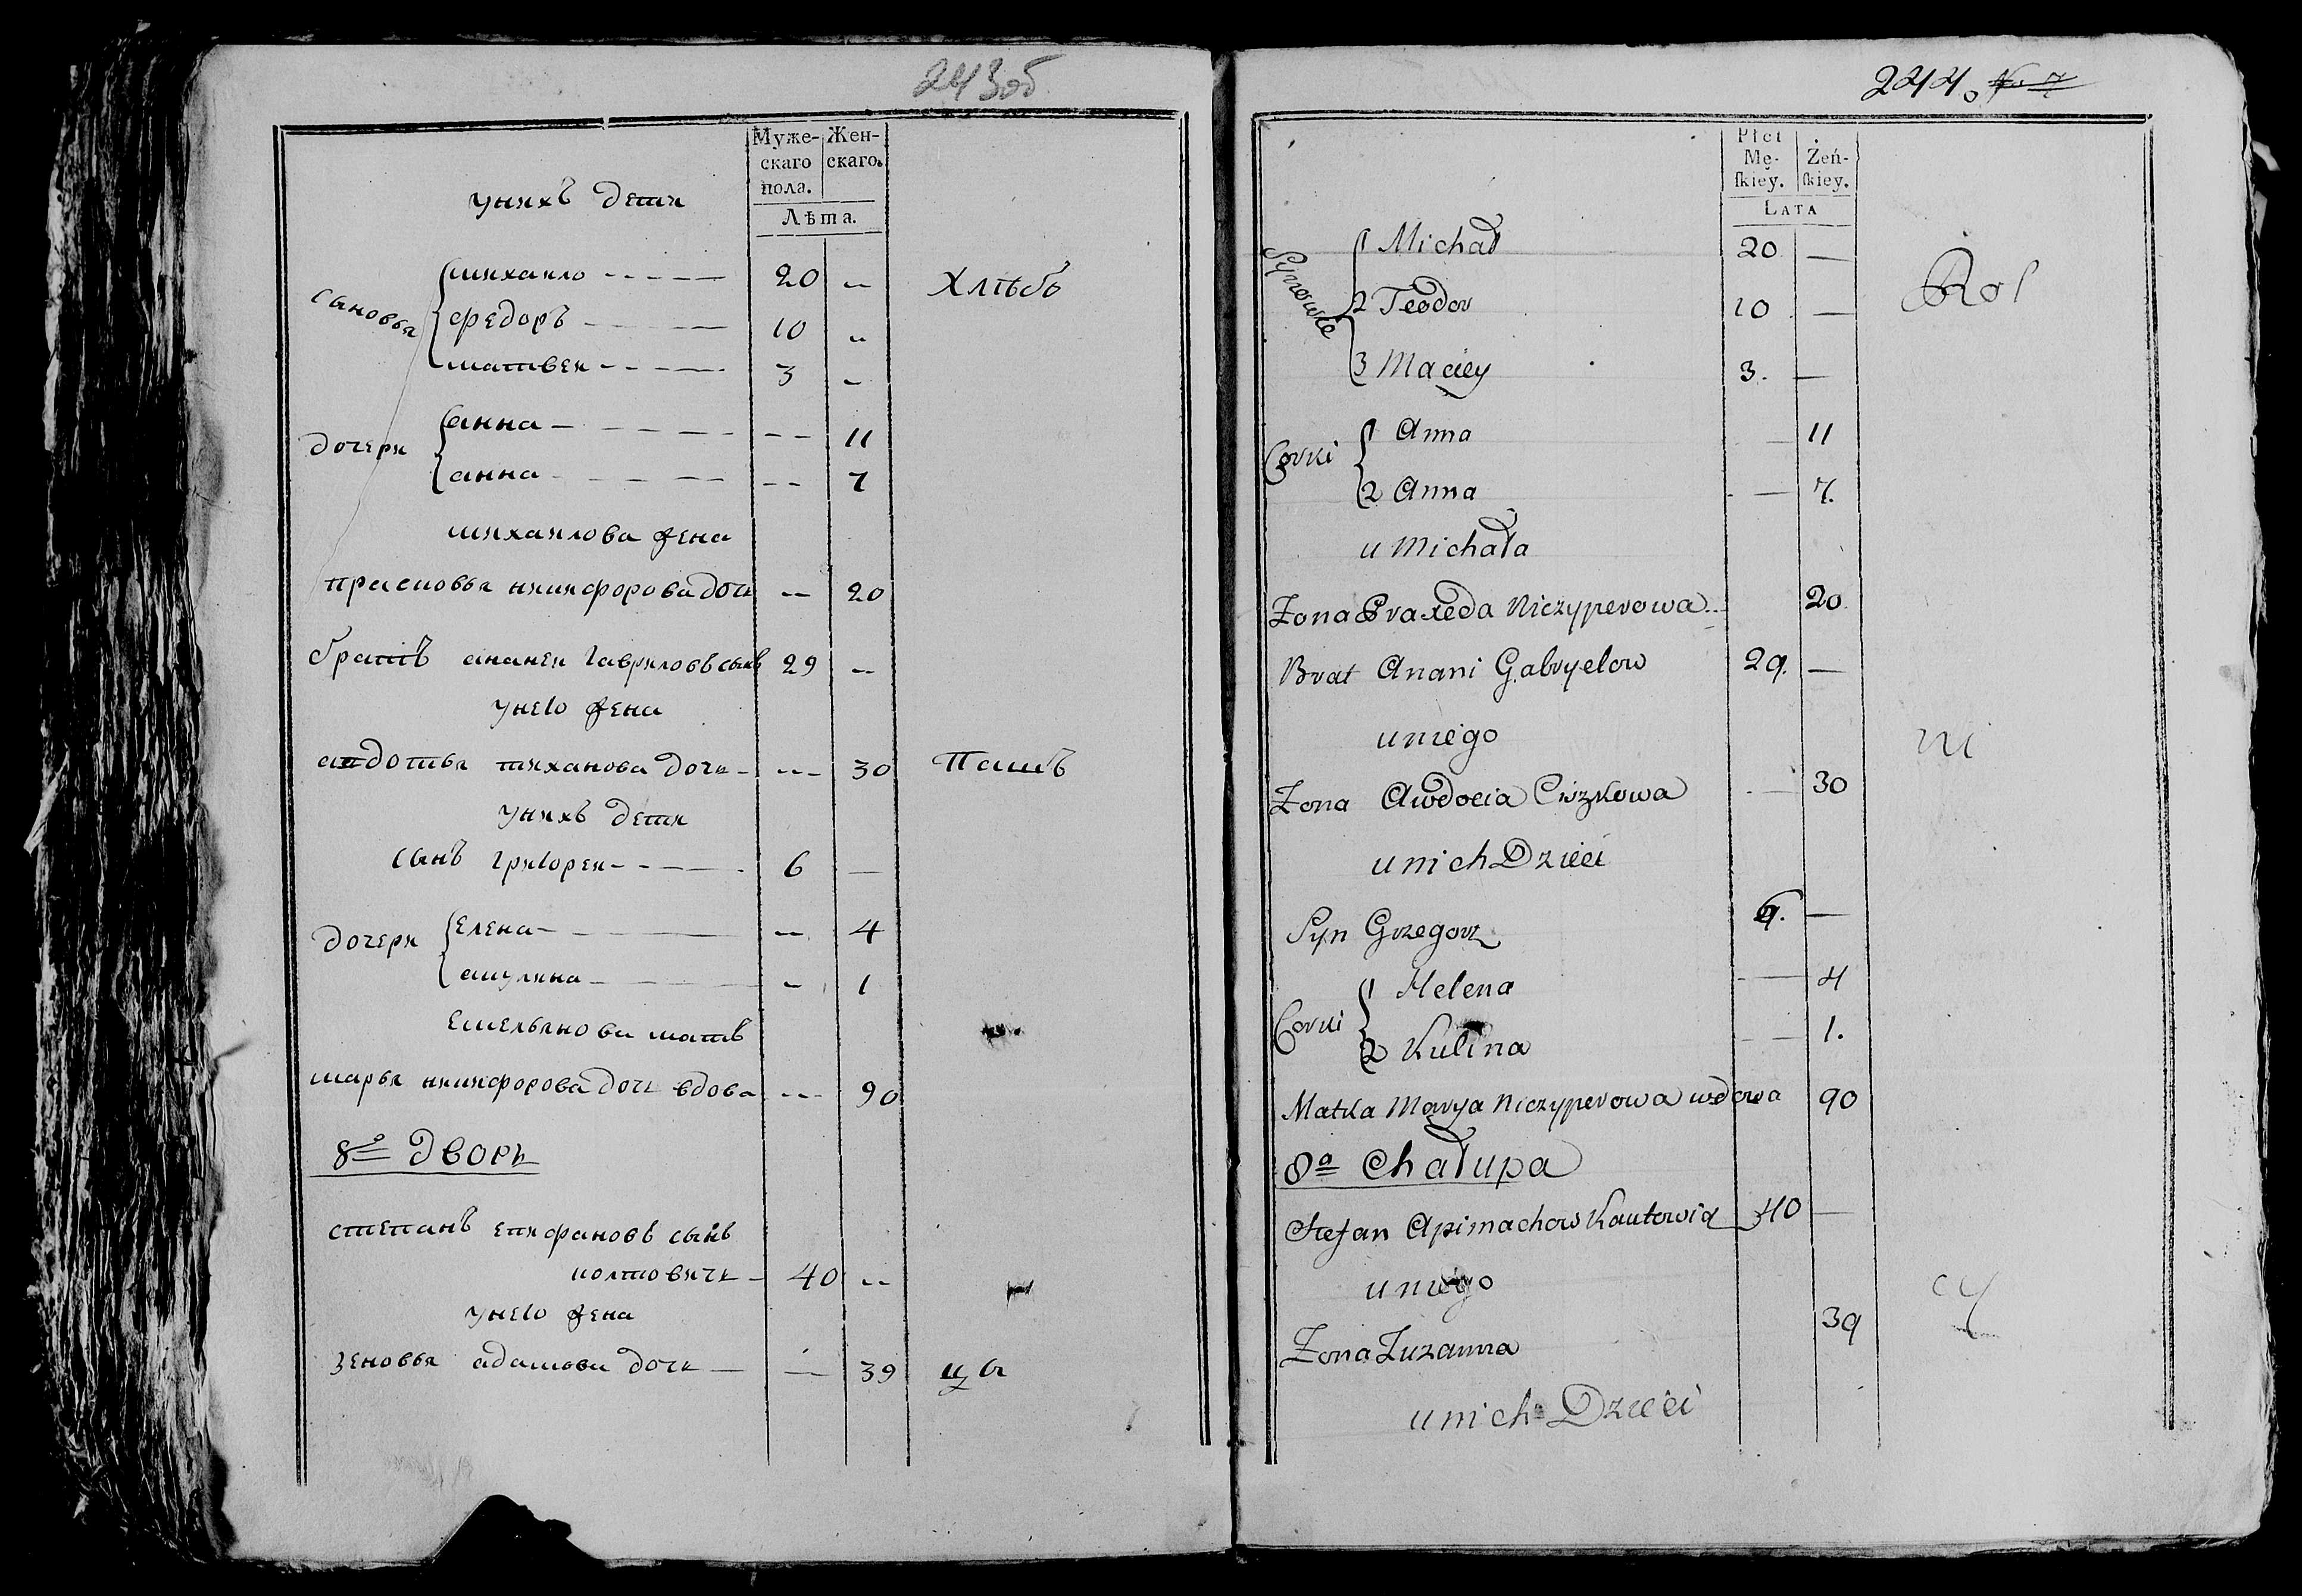 243об
Муже-
скаго
пола.
Жен-
скаго.
Лѣта.
унихъ дети
сыновья
михаило 20
федоръ 10
матвеи 3
Хлѣбъ
дочери
анна 11
анна 7
михаилова жена
прасковья никифорова дочь 20
братъ ананеи гавриловъ сынъ 29
унего жена
авдотья тиханова дочь 30
Пашъ
унихъ дети
сынъ григореи 6
дочери
елена 4
акулина 1
емельянова мать
марья никифорова дочь вдова 90
8й дворъ
степанъ епифановъ сынъ
колтовичь 40
унего жена
зеновья адамова дочь 39
244
Płci
Mę-
ſkiey.
Żeń-
ſkiey.
LATA
Synowie
1 Michał 20 —
2 Teodor 10 —
3 Maciey 3. —
Rol
Corki
1 Anna — 11
2 Anna — 7.
u Michała
Zona Praxeda Niczyperowa 20
Brat Anani Gabryelow 29. —
u niego
ni
Zona Awdocia Ciszkowa — 30
u nich Dzieci
Syn Grzegorz 6. —
Corki
1 Helena — 4
2 Kulina — 1.
Matka Marya Niczyperowa wdowa 90
8a Chałupa
Stefan Apimachow Kautowicz 40 —
u niego
Zona Zuzanna 39
u nich Dzieci